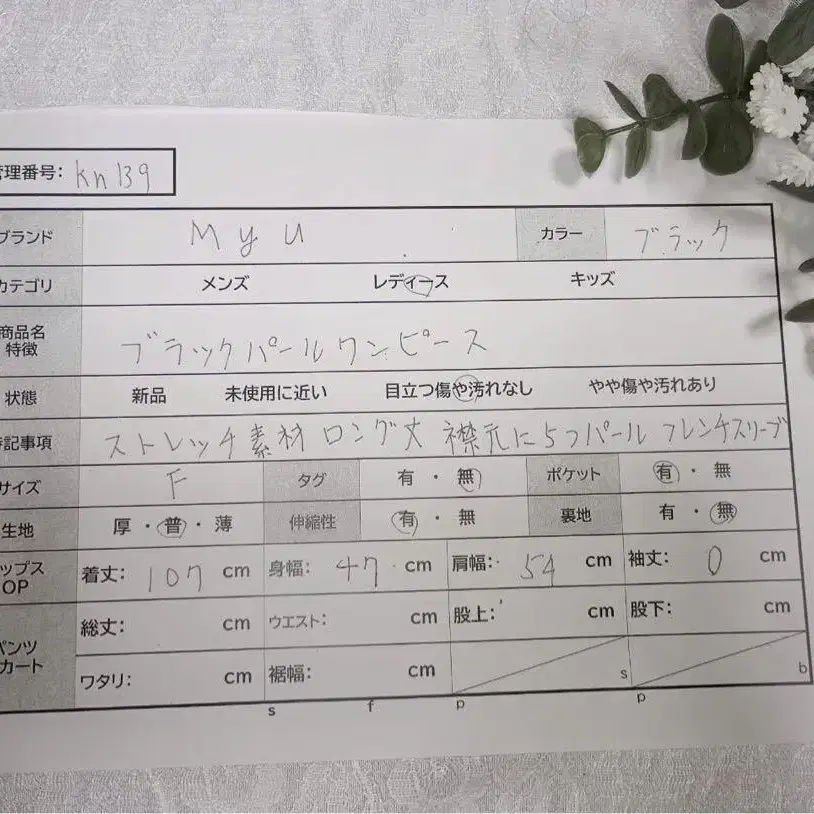 管理番号: kn139
ブランド Myu カラー ブラック
カテゴリ メンズ レディース キッズ
商品名 特徴 ブラックパールワンピース
状態 新品 未使用に近い 目立つ傷や汚れなし やや傷や汚れあり
特記事項 ストレッチ素材 ロング丈 襟元に5つパール フレンチスリーブ
サイズ F タグ 有・無 ポケット 有・無
生地 厚・普・薄 伸縮性 有・無 裏地 有・無
ップス OP 着丈: 107 cm 身幅: 47 cm 肩幅: 54 cm 袖丈: 0 cm
パンツ カート 総丈: cm ウエスト: cm 股上: cm 股下: cm
ワタリ: cm 裾幅: cm s b
s f p p